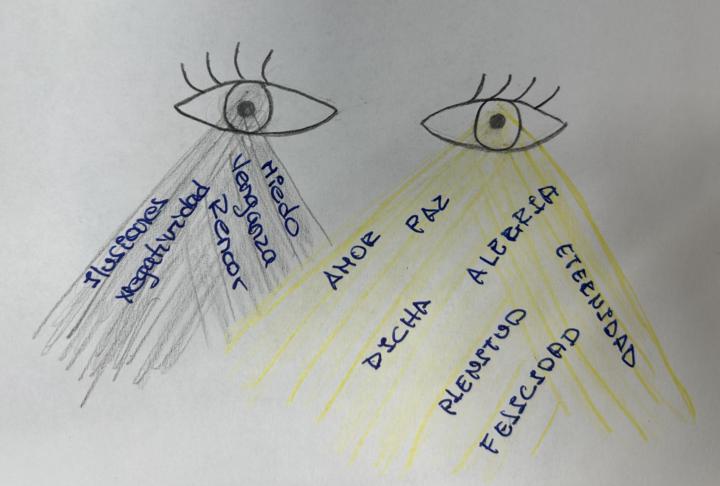 Ilusiones
Negatividad
Venganza
Rencor
Miedo
AMOR
PAZ
DICHA
ALEGRIA
PLENITUD
FELICIDAD
ETERNIDAD